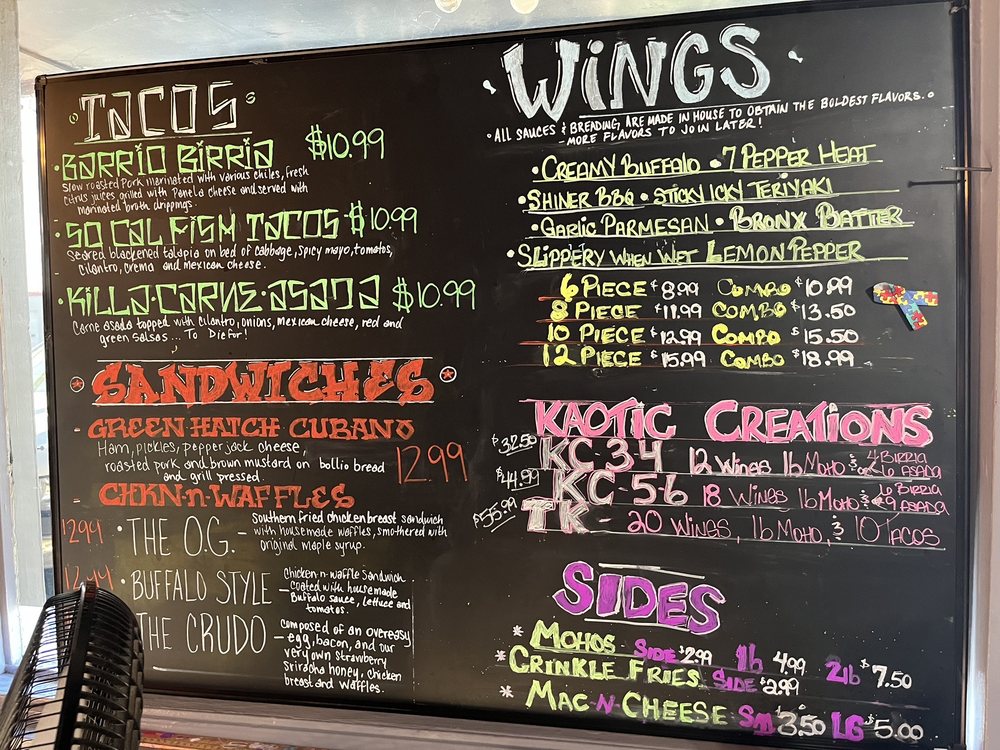 TACOS
• BARRIO BIRRIA $10.99
Slow roasted Pork marinated with various chiles, fresh
citrus juices grilled with Panela cheese and served with
marinated broth drippings.
• SO CAL FISH TACOS $10.99
Seared blackened talapia on bed of cabbage, spicy mayo, tomatos,
cilantro, crema and mexican cheese.
• KILLA • CARNE • ASADA $10.99
Carne asada topped with cilantro, onions, mexican cheese, red and
green salsas... To Die for!
SANDWICHES
- GREEN HATCH CUBANO
Ham, pickles, pepper jack cheese,
roasted pork and brown mustard on bollio bread
and grill pressed.
12.99
- CHKN-n-WAFFLES
12.99 • THE O.G. - Southern fried chicken breast sandwich
with housemade waffles, smothered with
original maple syrup.
• BUFFALO STYLE - Chicken-n-waffle sandwich
coated with housemade
Buffalo sauce, lettuce and
tomatos.
THE CRUDO - composed of an overeasy
egg, bacon, and our
very own strawberry
Sriracha honey, chicken
breast and waffles.
WiNGS
• ALL SAUCES & BREADING, ARE MADE IN HOUSE TO OBTAIN THE BOLDEST FLAVORS.
- MORE FLAVORS TO JOIN LATER!
• CREAMY BUFFALO • 7 PEPPER HEAT
• SHINER BBQ • STICKY ICKY TERIYAKI
• GARLIC PARMESAN • BRONX BATTER
• SLIPPERY WHEN WET LEMON PEPPER
6 PIECE $8.99 COMBO $10.99
8 PIECE $11.99 COMBO $13.50
10 PIECE $12.99 COMBO $15.50
12 PIECE $15.99 COMBO $18.99
KAOTIC CREATIONS
$32.50 KC-34 12 WINGS 1lb MOHO & 4 BIRRIA
or 6 ASADA
$44.99 KC-5-6 18 WINGS 1lb MOHO & 6 BIRRIA
9 ASADA
$55.99 TK - 20 WINGS, 1lb MOHO, & 10 TACOS
SIDES
* MOHOS SIDE $2.99 1lb 4.99 2lb $7.50
* CRINKLE FRIES SIDE $2.99
* MAC-N-CHEESE SM $3.50 LG $5.00